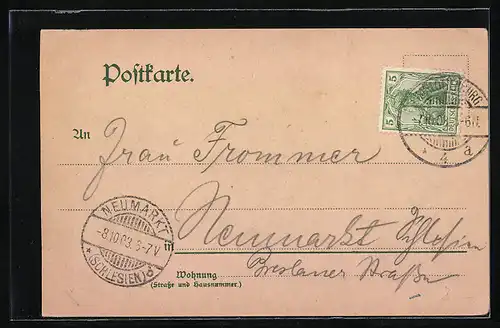 Postkarte.
5
An Frau Frommer
in Neumarkt Schlesien
Wohnung
(Straße und Hausnummer.)
Breslauer Straße
NEUMARKT
-8.10.03.6-7V
*(SCHLESIEN)d
* 4. a